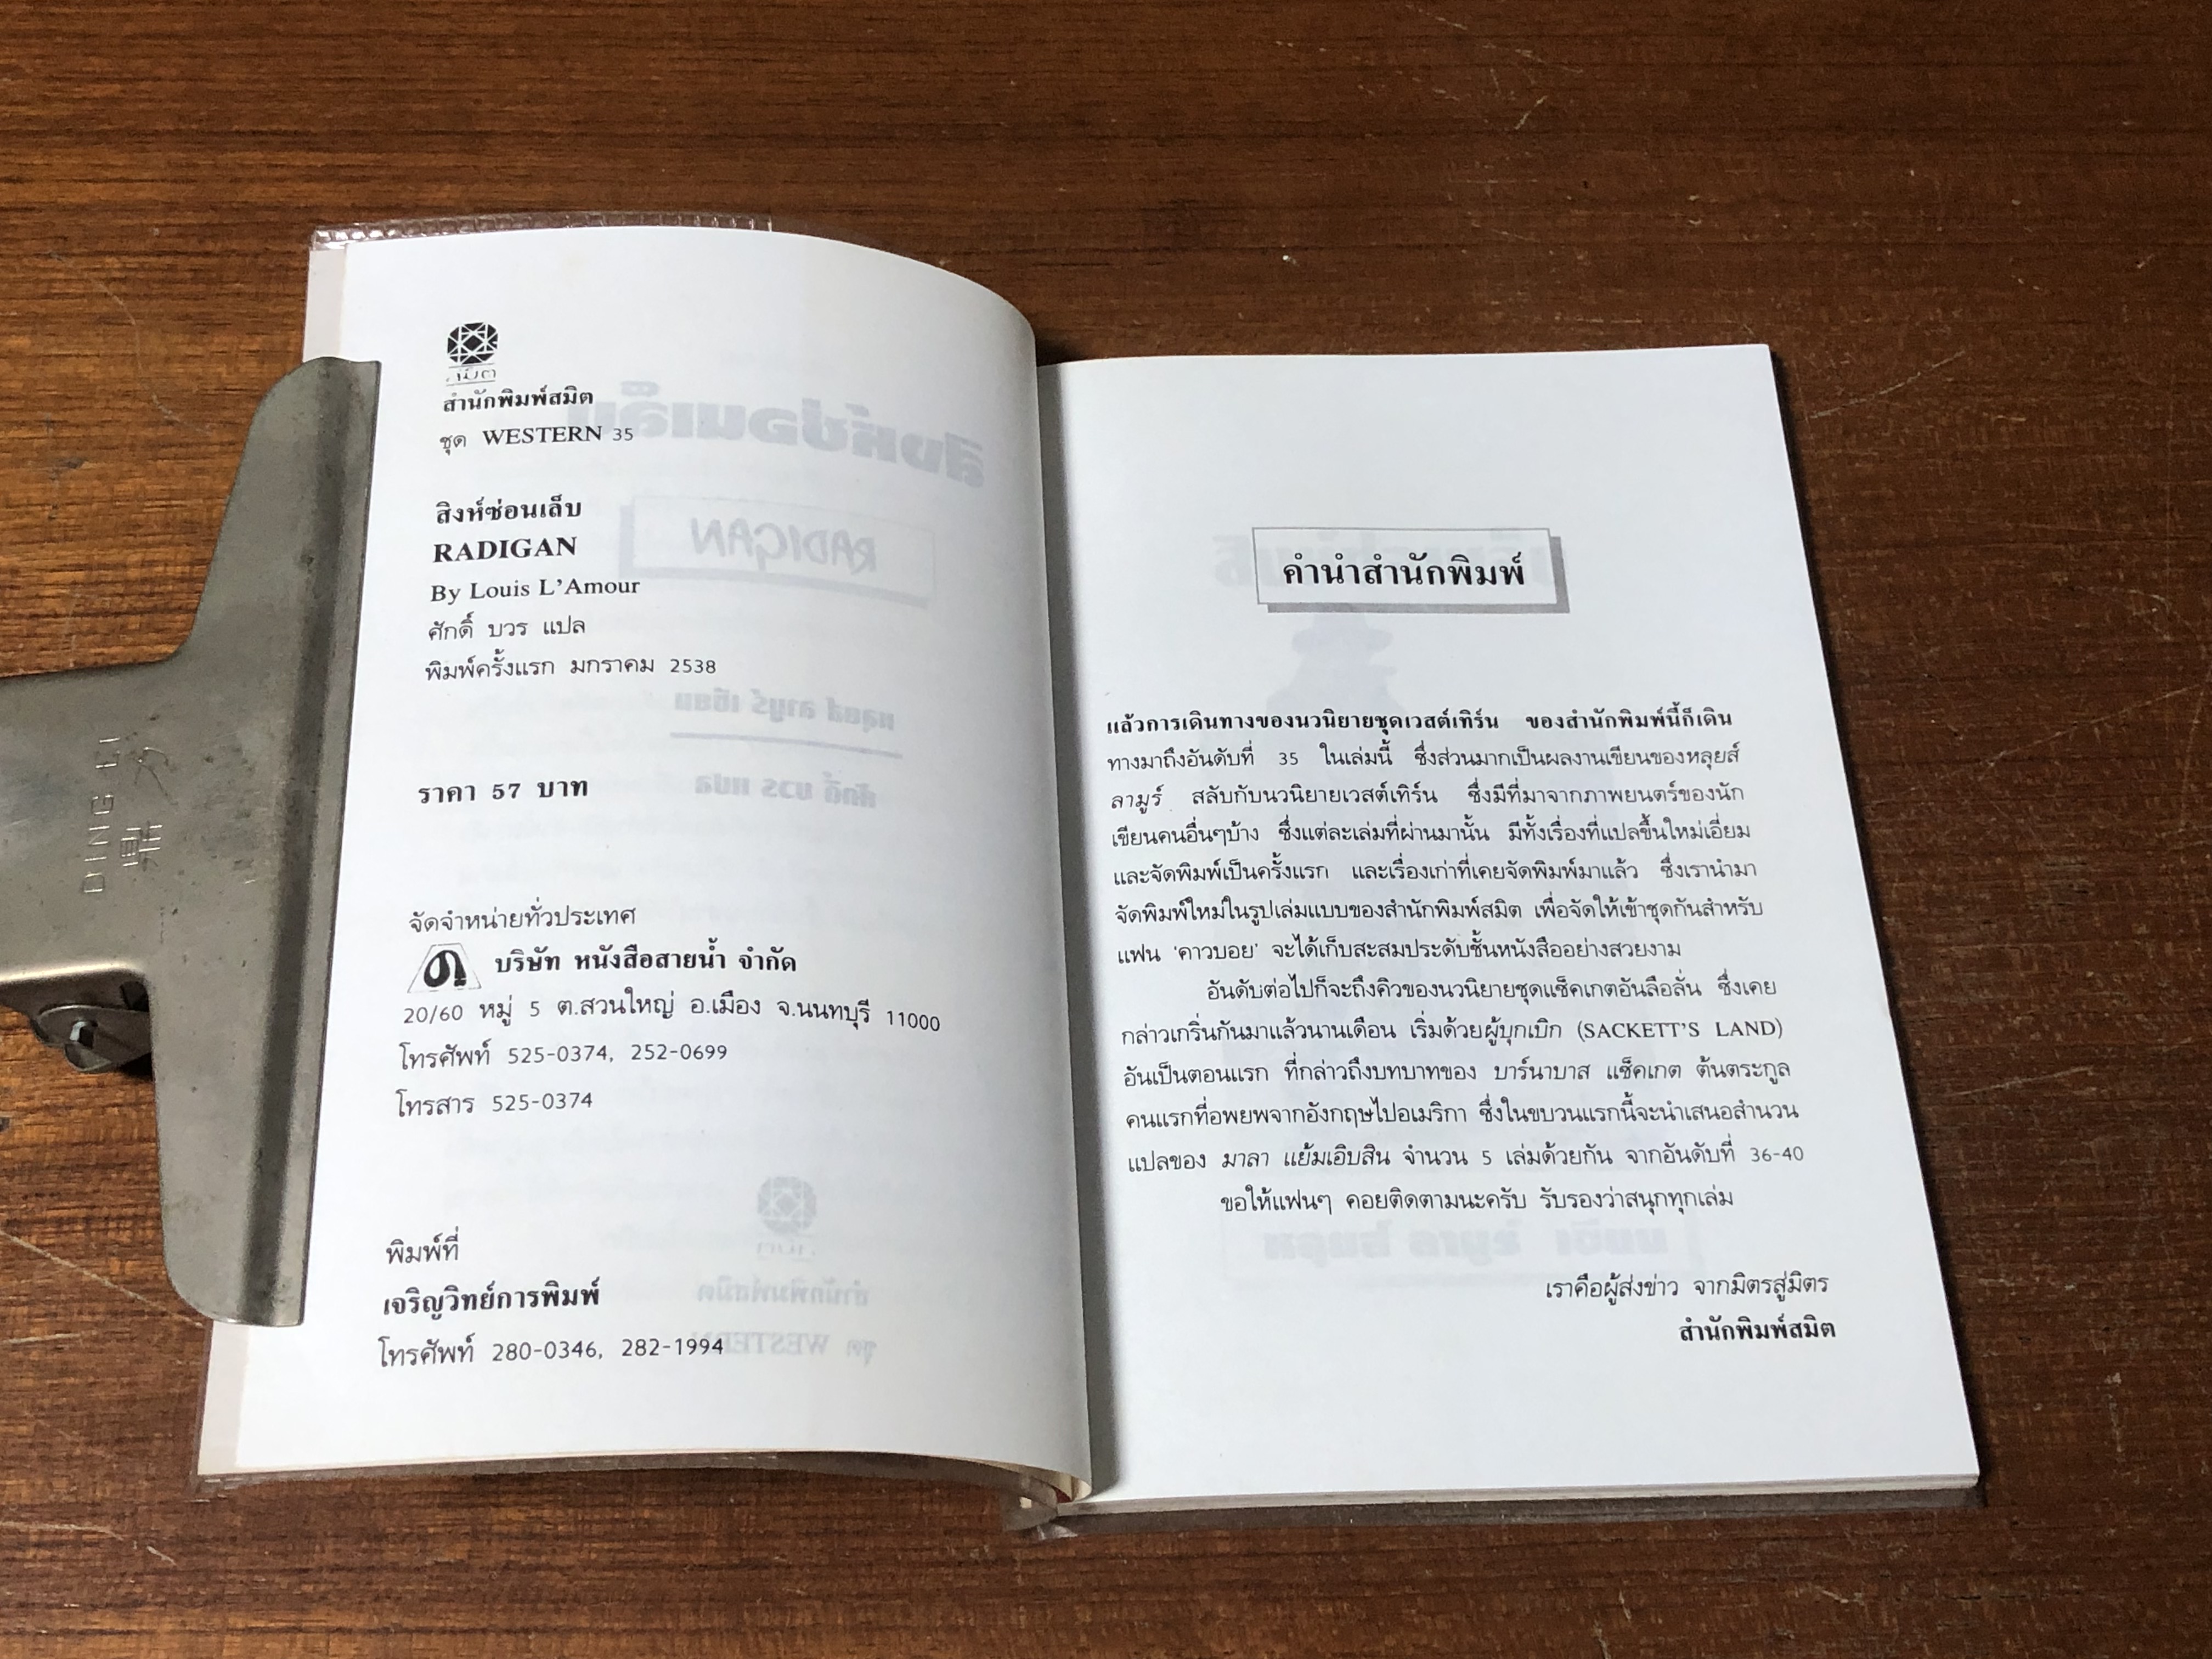 สมิต
สำนักพิมพ์สมิต
ชุด WESTERN 35
สิงห์ซ่อนเล็บ
RADIGAN
By Louis L'Amour
ศักดิ์ บวร แปล
พิมพ์ครั้งแรก มกราคม 2538
ราคา 57 บาท
จัดจำหน่ายทั่วประเทศ
บริษัท หนังสือสายน้ำ จำกัด
20/60 หมู่ 5 ต.สวนใหญ่ อ.เมือง จ.นนทบุรี 11000
โทรศัพท์ 525-0374, 252-0699
โทรสาร 525-0374
พิมพ์ที่
เจริญวิทย์การพิมพ์
โทรศัพท์ 280-0346, 282-1994
DING LI
คำนำสำนักพิมพ์
แล้วการเดินทางของนวนิยายชุดเวสต์เทิร์น ของสำนักพิมพ์นี้ก็เดิน
ทางมาถึงอันดับที่ 35 ในเล่มนี้ ซึ่งส่วนมากเป็นผลงานเขียนของหลุยส์
ลามูร์ สลับกับนวนิยายเวสต์เทิร์น ซึ่งมีที่มาจากภาพยนตร์ของนัก
เขียนคนอื่นๆบ้าง ซึ่งแต่ละเล่มที่ผ่านมานั้น มีทั้งเรื่องที่แปลขึ้นใหม่เอี่ยม
และจัดพิมพ์เป็นครั้งแรก และเรื่องเก่าที่เคยจัดพิมพ์มาแล้ว ซึ่งเรานำมา
จัดพิมพ์ใหม่ในรูปเล่มแบบของสำนักพิมพ์สมิต เพื่อจัดให้เข้าชุดกันสำหรับ
แฟน 'คาวบอย' จะได้เก็บสะสมประดับชั้นหนังสืออย่างสวยงาม
อันดับต่อไปก็จะถึงคิวของนวนิยายชุดแซ็คเกตอันลือลั่น ซึ่งเคย
กล่าวเกริ่นกันมาแล้วนานเดือน เริ่มด้วยผู้บุกเบิก (SACKETT'S LAND)
อันเป็นตอนแรก ที่กล่าวถึงบทบาทของ บาร์นาบาส แซ็คเกต ต้นตระกูล
คนแรกที่อพยพจากอังกฤษไปอเมริกา ซึ่งในขบวนแรกนี้จะนำเสนอสำนวน
แปลของ มาลา แย้มเอิบสิน จำนวน 5 เล่มด้วยกัน จากอันดับที่ 36-40
ขอให้แฟนๆ คอยติดตามนะครับ รับรองว่าสนุกทุกเล่ม
เราคือผู้ส่งข่าว จากมิตรสู่มิตร
สำนักพิมพ์สมิต